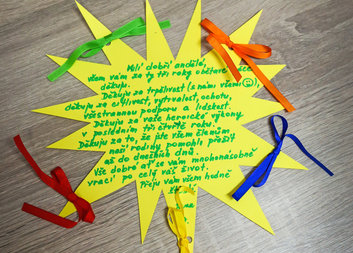 Milí dobří andělé,
všem vám za ty tři roky obětavé péče
děkuji.
Děkuji za trpělivost (s námi všemi ☺),
děkuji za citlivost, vytrvalost, ochotu,
všestrannou podporu a lidskost.
Děkuji za vaše heroické výkony
v posledním tři čtvrtě roku.
Děkuji za to, že jste všem členům
naší rodiny pomohli přežít
až do dnešních dnů.
Vše dobré ať se vám mnohonásobně
vrací po celý váš život.
Přeju vám všem hodně